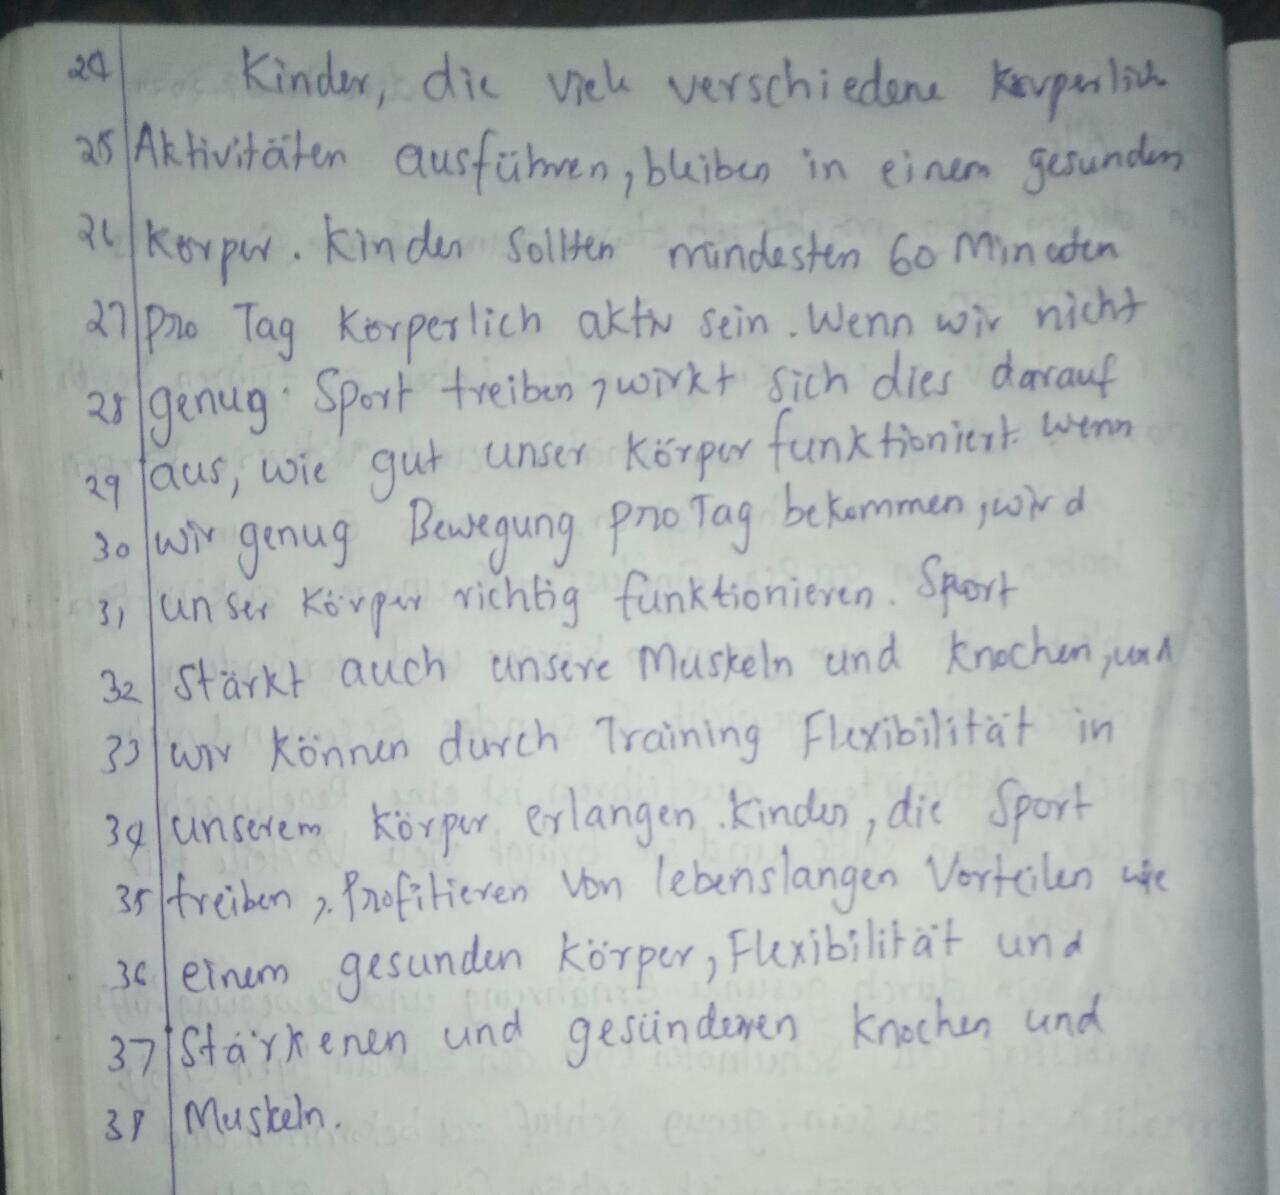 24 Kinder, die viele verschiedene körperlich
25 Aktivitäten ausführen, bleiben in einem gesunden
26 Körper. Kinder sollten mindesten 60 Minuten
27 pro Tag körperlich aktiv sein. Wenn wir nicht
28 genug Sport treiben, wirkt sich dies darauf
29 aus, wie gut unser Körper funktioniert. Wenn
30 wir genug Bewegung pro Tag bekommen, wird
31 unser Körper richtig funktionieren. Sport
32 Stärkt auch unsere Muskeln und Knochen, und
33 wir können durch Training Flexibilität in
34 unserem Körper erlangen. Kinder, die Sport
35 treiben, Profitieren von lebenslangen Vorteilen wie
36 einem gesunden Körper, Flexibilität und
37 Stärkenen und gesünderen Knochen und
38 Muskeln.